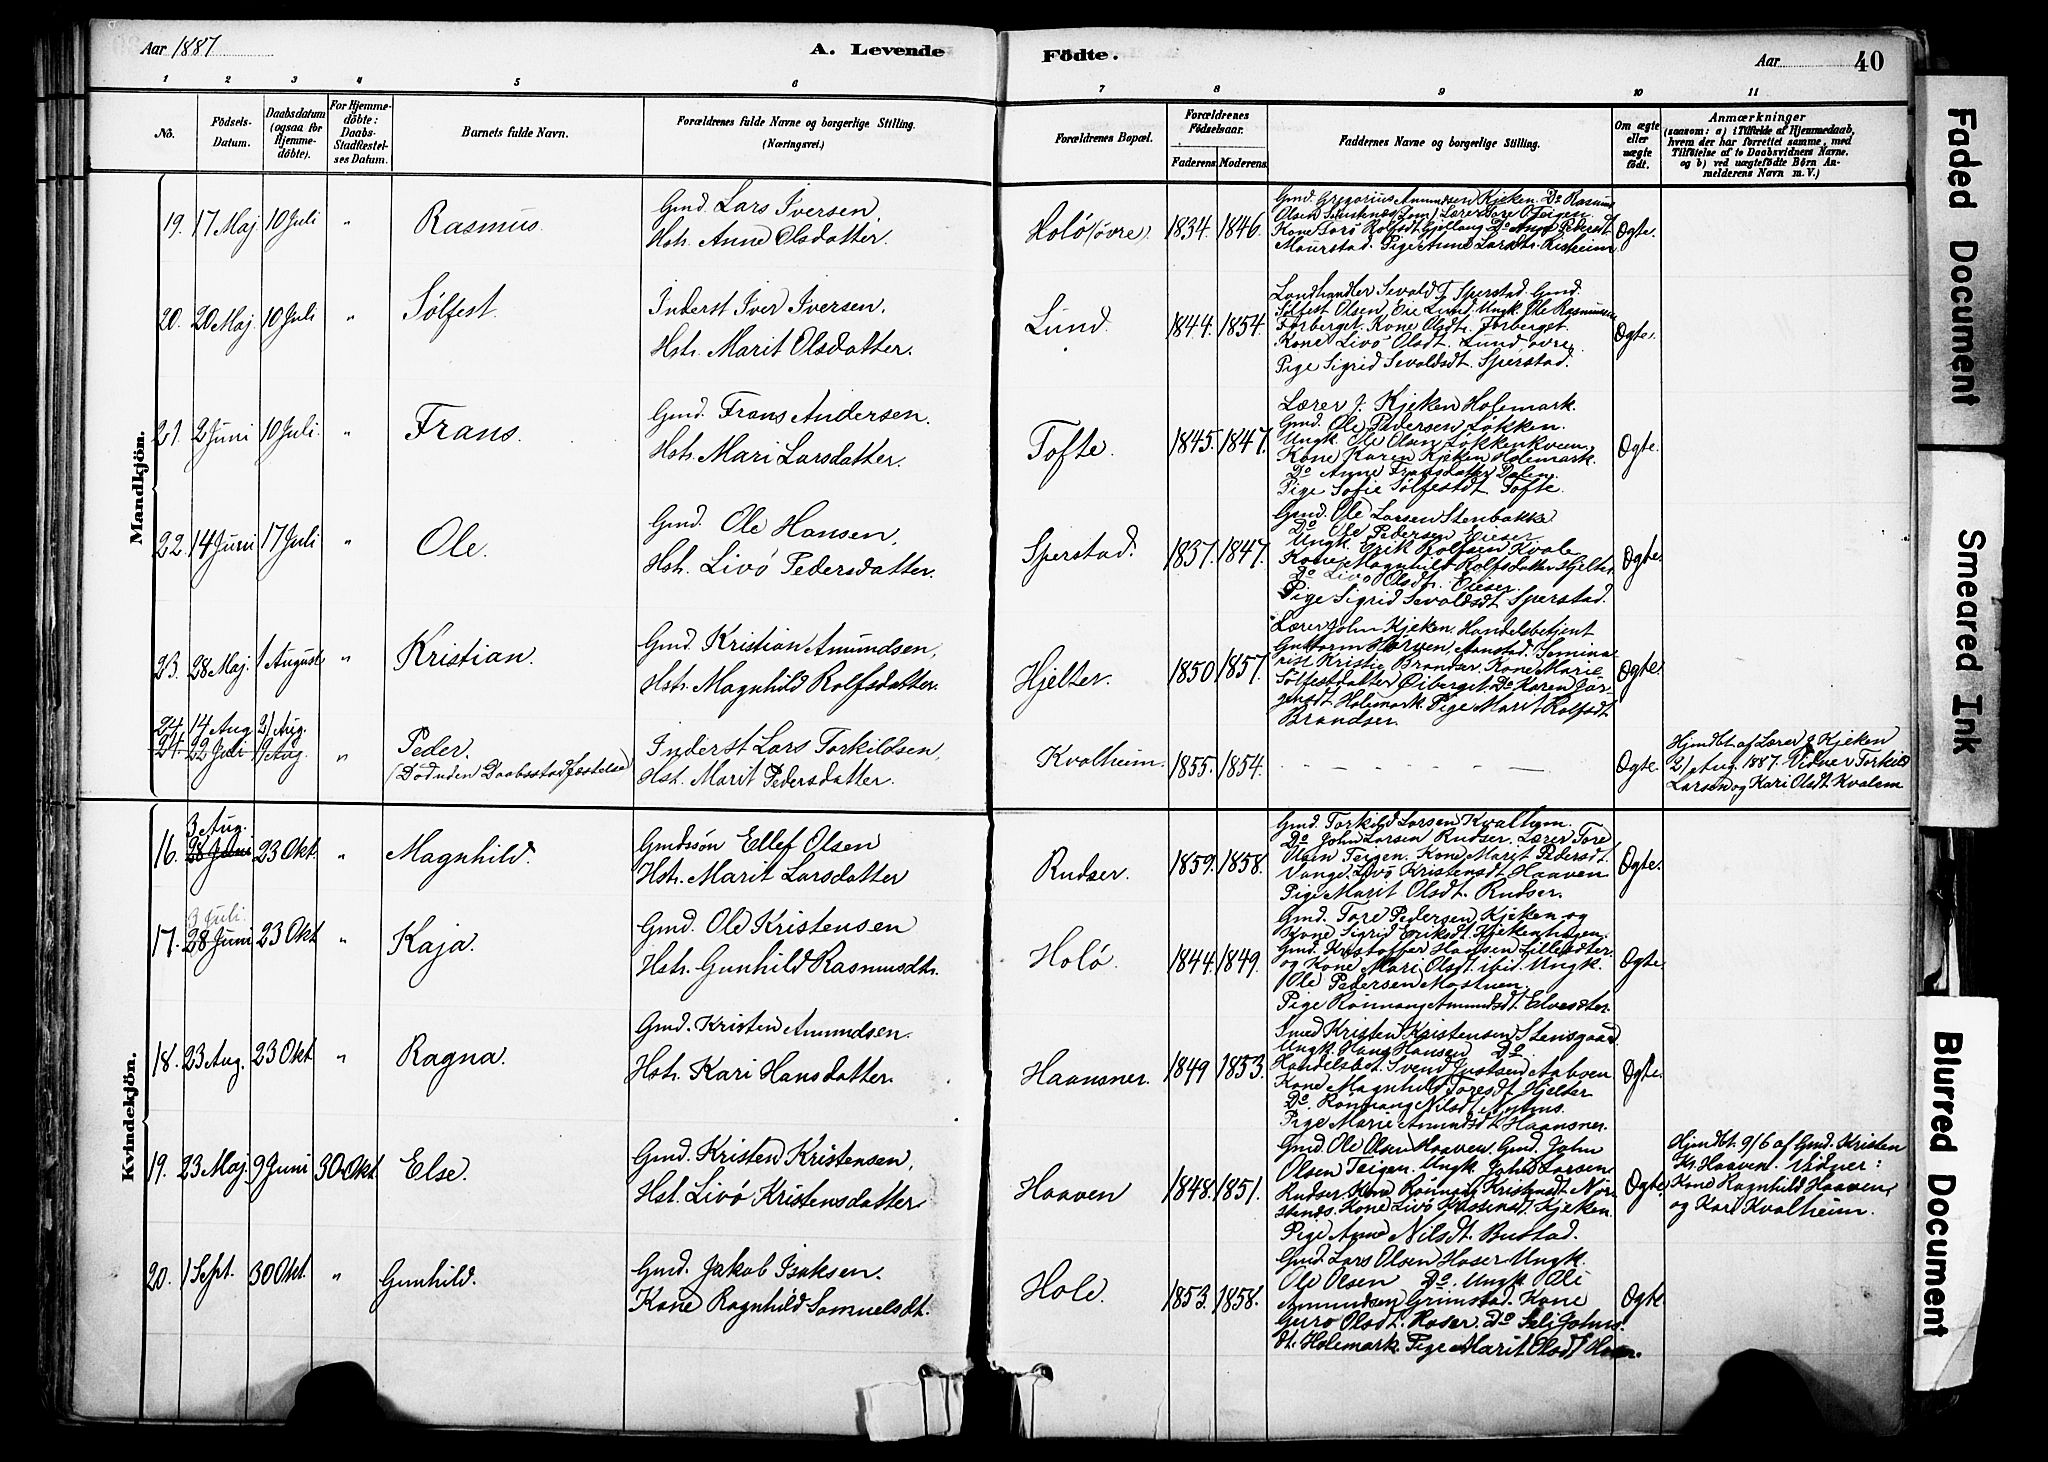 Aar 1887
A. Levende
Födte.
Aar
40
1 2 3 4 5 6 7 8 9 10 11
No.
Födsels-
Datum.
Daabsdatum
(ogsaa for
Hjemme-
döbte).
For Hjemme-
döbte:
Daabs-
Stadfæstel-
ses Datum.
Barnets fulde Navn.
Forældrenes fulde Navne og borgerlige Stilling.
(Næringsvei.)
Forældrenes Bopæl.
Forældrenes
Födselsaar.
Faderens. Moderens.
Faddernes Navne og borgerlige Stilling.
Om ægte
eller
uægte
födt.
Anmærkninger
(saasom: a) i Tilfælde af Hjemmedaab,
hvem der har forrettet samme, med
Tilföielse af to Daabsvidners Navne.
og b) ved uægtefödte Börn An-
melderens Navn m. V.)
Mandkjön.
19. 17 Maj 10 Juli " Rasmus
Gmd. Lars Iversen,
Hstr. Anne Olsdatter.
Holö (övre). 1834. 1846.
Gmd. Gregorius Amundsen Kjeken. Do Rasmus
Olsen (Lom) Lærer Tore O. Teigen
Kone
Maurstad. Pige Anne Larsdtr. Risheim
Ogte.
20. 20 Maj. 10 Juli " Sölfest.
Inderst Iver Iversen,
Hstr. Marit Olsdatter.
Lund. 1844. 1854.
Landhandler Sevald T. Sperstad. Gmd.
Sölfest Olsen Lund. Ungk. Ole Rasmussen
Forberget. Kone Olsdtr. Forberget.
Kone Livö Olsdt. Lund övre.
Pige Sigrid Sevaldsdt. Sperstad.
Ogte.
21. 2 Juni 10 Juli. " Frans.
Gmd. Frans Andersen.
Hstr. Mari Larsdatter.
Tofte. 1845. 1847.
Lærer J. Kjeken Holemark.
Gmd. Ole Pedersen Lökken.
Ungk. Ole Olsen Lökkenkvern
Kone Karen Kjeken Holemark.
Do Anne Fransdatter Dalen
Pige Sofie Sölfestdt. Tofte.
Ogte.
22. 14 Juni 17 Juli " Ole.
Gmd. Ole Hansen,
Hstr. Livö Pedersdatter.
Sperstad. 1837. 1847.
Gmd. Ole Larsen Stenbakke
Do Ole Pedersen Eieser
Ungk. Erik Rolfsen Kvale
Kone Magnhild Rolfsdatter Hjelter
Do Livö Olsdtr. Eieser
Pige Sigrid Sevaldsdt Sperstad.
Ogte.
23. 28 Maj. 1 August " Kristian.
Gmd. Kristian Amundsen,
Hstr. Magnhild Rolfsdatter.
Hjelter. 1850. 1857.
Lærer John Kjeken. Handelsbetjent
Guttorm Aanstad. Semina-
rist Kristie Brandser. Kone Marie
Sölfestdatter Öiberget. Do Karen Jör-
gensdt Holemark. Pige Marit Rolfsdt
Brandser.
Ogte.
24. 14 Aug. 21 Aug.
24. 22 Juli 9 Aug. " Peder.
(Död uden Daabsstadfæstelse)
Inderst Lars Torkildsen,
Hst. Marit Pedersdatter.
Kvalheim. 1855. 1854.
Ogte.
Hjemdbt. af Lærer J. Kjeken
21 Aug. 1887. Vidner Torkild
Larsen og Kari Olsdt. Kvalem
Kvindekjön.
3 Aug.
16. 28 Juni 23 Okt. " Magnhild.
Gmdssön Ellef Olsen
Hstr. Marit Larsdatter
Rudser. 1859. 1858.
Gmd. Torkild Larsen Kvalhem.
Do John Larsen Rudser. Lærer Tore
Olsen Teigen. Kone Marit Pedersdt.
Vange. Livö Kristensdt Haaven
Pige Marit Olsdt. Rudser.
Ogte.
3 Juli.
17. 28 Juni 23 Okt " Kaja.
Gmd. Ole Kristensen
Hstr. Gunhild Rasmusdtr.
Holö. 1844. 1849.
Gmd. Tore Pedersen Kjeken og
Kone Sigrid Eriksdt. Kjekenhagen.
Gmd. Kristoffer Hansen
og Kone Mari Olsdt. ibid. Ungk.
Ole Pedersen
Pige Rönnaug Amundsdt Elvesæter
Ogte.
18. 23 Aug. 23 Okt " Ragna.
Gmd. Kristen Amundsen.
Hstr. Kari Hansdatter.
Haansner. 1849 1853.
Smed Kristen Kristensen Stensgaad
Ungk. Hans Hansen Do
Handelsbet. Svend Justsen Aaboen
Kone Magnhild Toresdt Hjelter
Do. Rönnaug Nilsdt
Pige Marie Amundsdt Haansner.
Ogte.
19. 23 Maj. 9 Juni 30 Okt. Else.
Gmd. Kristen Kristensen,
Hst. Livö Kristensdatter
Haaven 1848. 1851.
Gmd. Ole Olsen Haaven. Gmd. John
Olsen Teigen. Ungk. John Larsen
Rudser. Kone Rönnaug Kristensdt Nör-
stends. Kone Livö Kristensdt. Kjeken.
Pige Anne Nilsdt. Bustad.
Ogte.
Hjemdbt. 9/6 af Gmd. Kristen
Kr. Haaven. Vidner:
Kone Ragnhild Haaven,
og Kari Kvalheim.
20. 1 Sept. 30 Okt. " Gunhild.
Gmd. Jakob Isaksen.
Kone Ragnhild Samuelsdt.
Hole. 1853. 1858.
Gmd. Lars Olsen Hoser Ungk.
Ole Olsen Do. Ungk. Ole
Amundsen Grimstad. Kone
Guro Olsdt. Hoser. Do Seli Johns-
dt. Holemark. Pige Marit Olsdt
Ogte.
Faded Document
Smeared Ink
Blurred Document